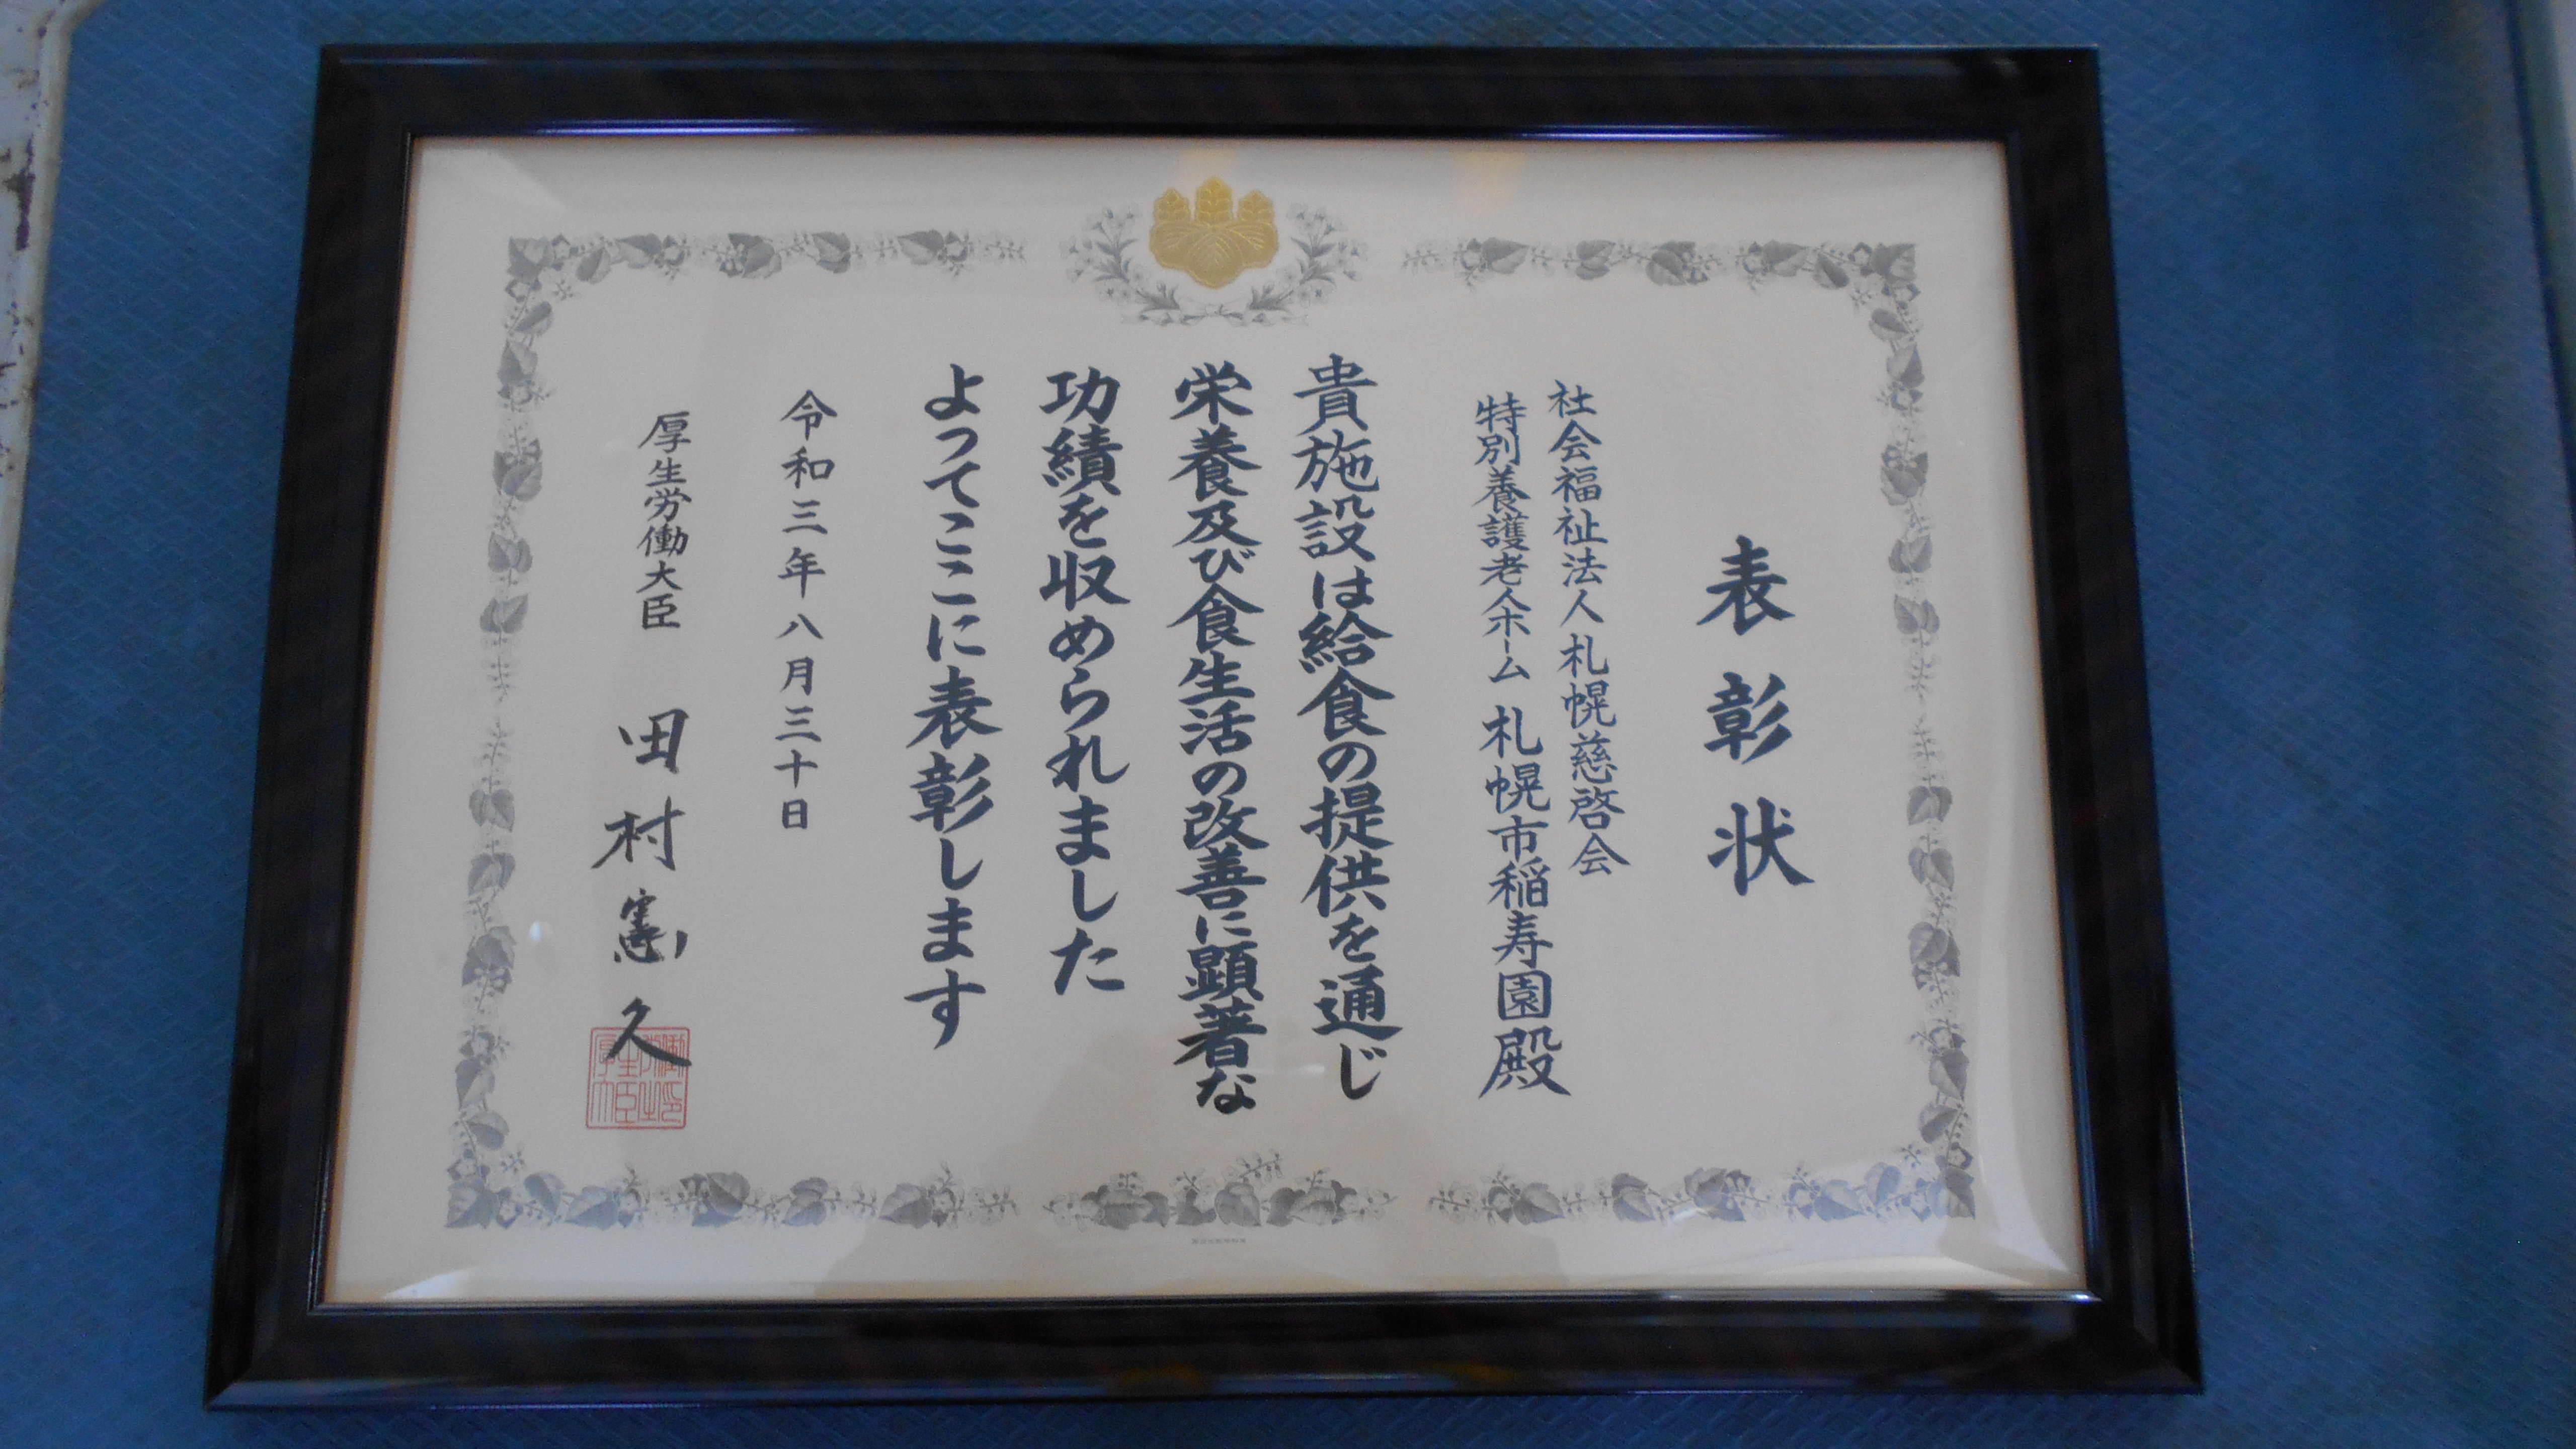 表彰状
社会福祉法人 札幌慈啓会
特別養護老人ホーム 札幌市稲寿園殿
貴施設は給食の提供を通じ
栄養及び食生活の改善に顕著な
功績を収められました
よってここに表彰します
令和三年八月三十日
厚生労働大臣 田村憲久